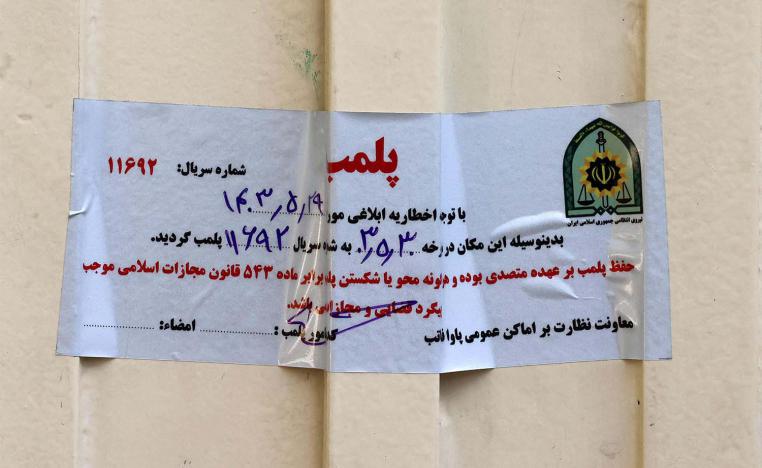 پلمب
شماره سریال: ۱۱۶۹۲
نیروی انتظامی جمهوری اسلامی ایران
با توجه اخطاریه ابلاغی مورخ ۱۴۰۳٫۵٫۲۹
بدینوسیله این مکان در ۳٫۵٫۳۰ به ش سریال ۱۱۶۹۲ پلمب گردید.
حفظ پلمب بر عهده متصدی بوده و محو یا شکستن برابر ماده ۵۴۳ قانون مجازات اسلامی موجب
پیگرد قضایی و مجازات باشد.
معاونت نظارت بر اماکن عمومی
پلمب : امضاء: